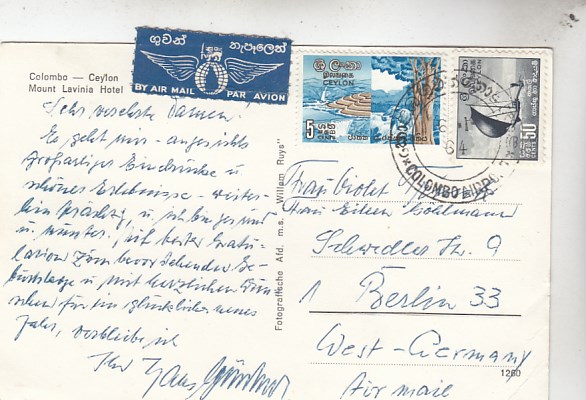 ගුවන් තැපෑලෙන්
BY AIR MAIL PAR AVION
Colombo — Ceylon
Mount Lavinia Hotel
ශ්‍රී ලංකා
இலங்கை
CEYLON
5
50
COLOMBO AIRPORT
Sehr verehrte Damen!
Es geht mir - angesichts
großartiger Eindrücke u.
schöner Erlebnisse - weiter-
hin prächtig, u. ich bin gesund
u. munter. Mit bester Gratu-
lation zum bevorstehenden Ge-
burtstage u. mit herzlichen Wün-
schen für ein glückliches neues
Jahr, verbleibe ich
Ihr Hans
Fotografische Afd. m.s. „Willem Ruys"
Frau Violet
Frau Eileen
Schwedler Str. 9
1 Berlin 33
West-Germany
Air mail
1260